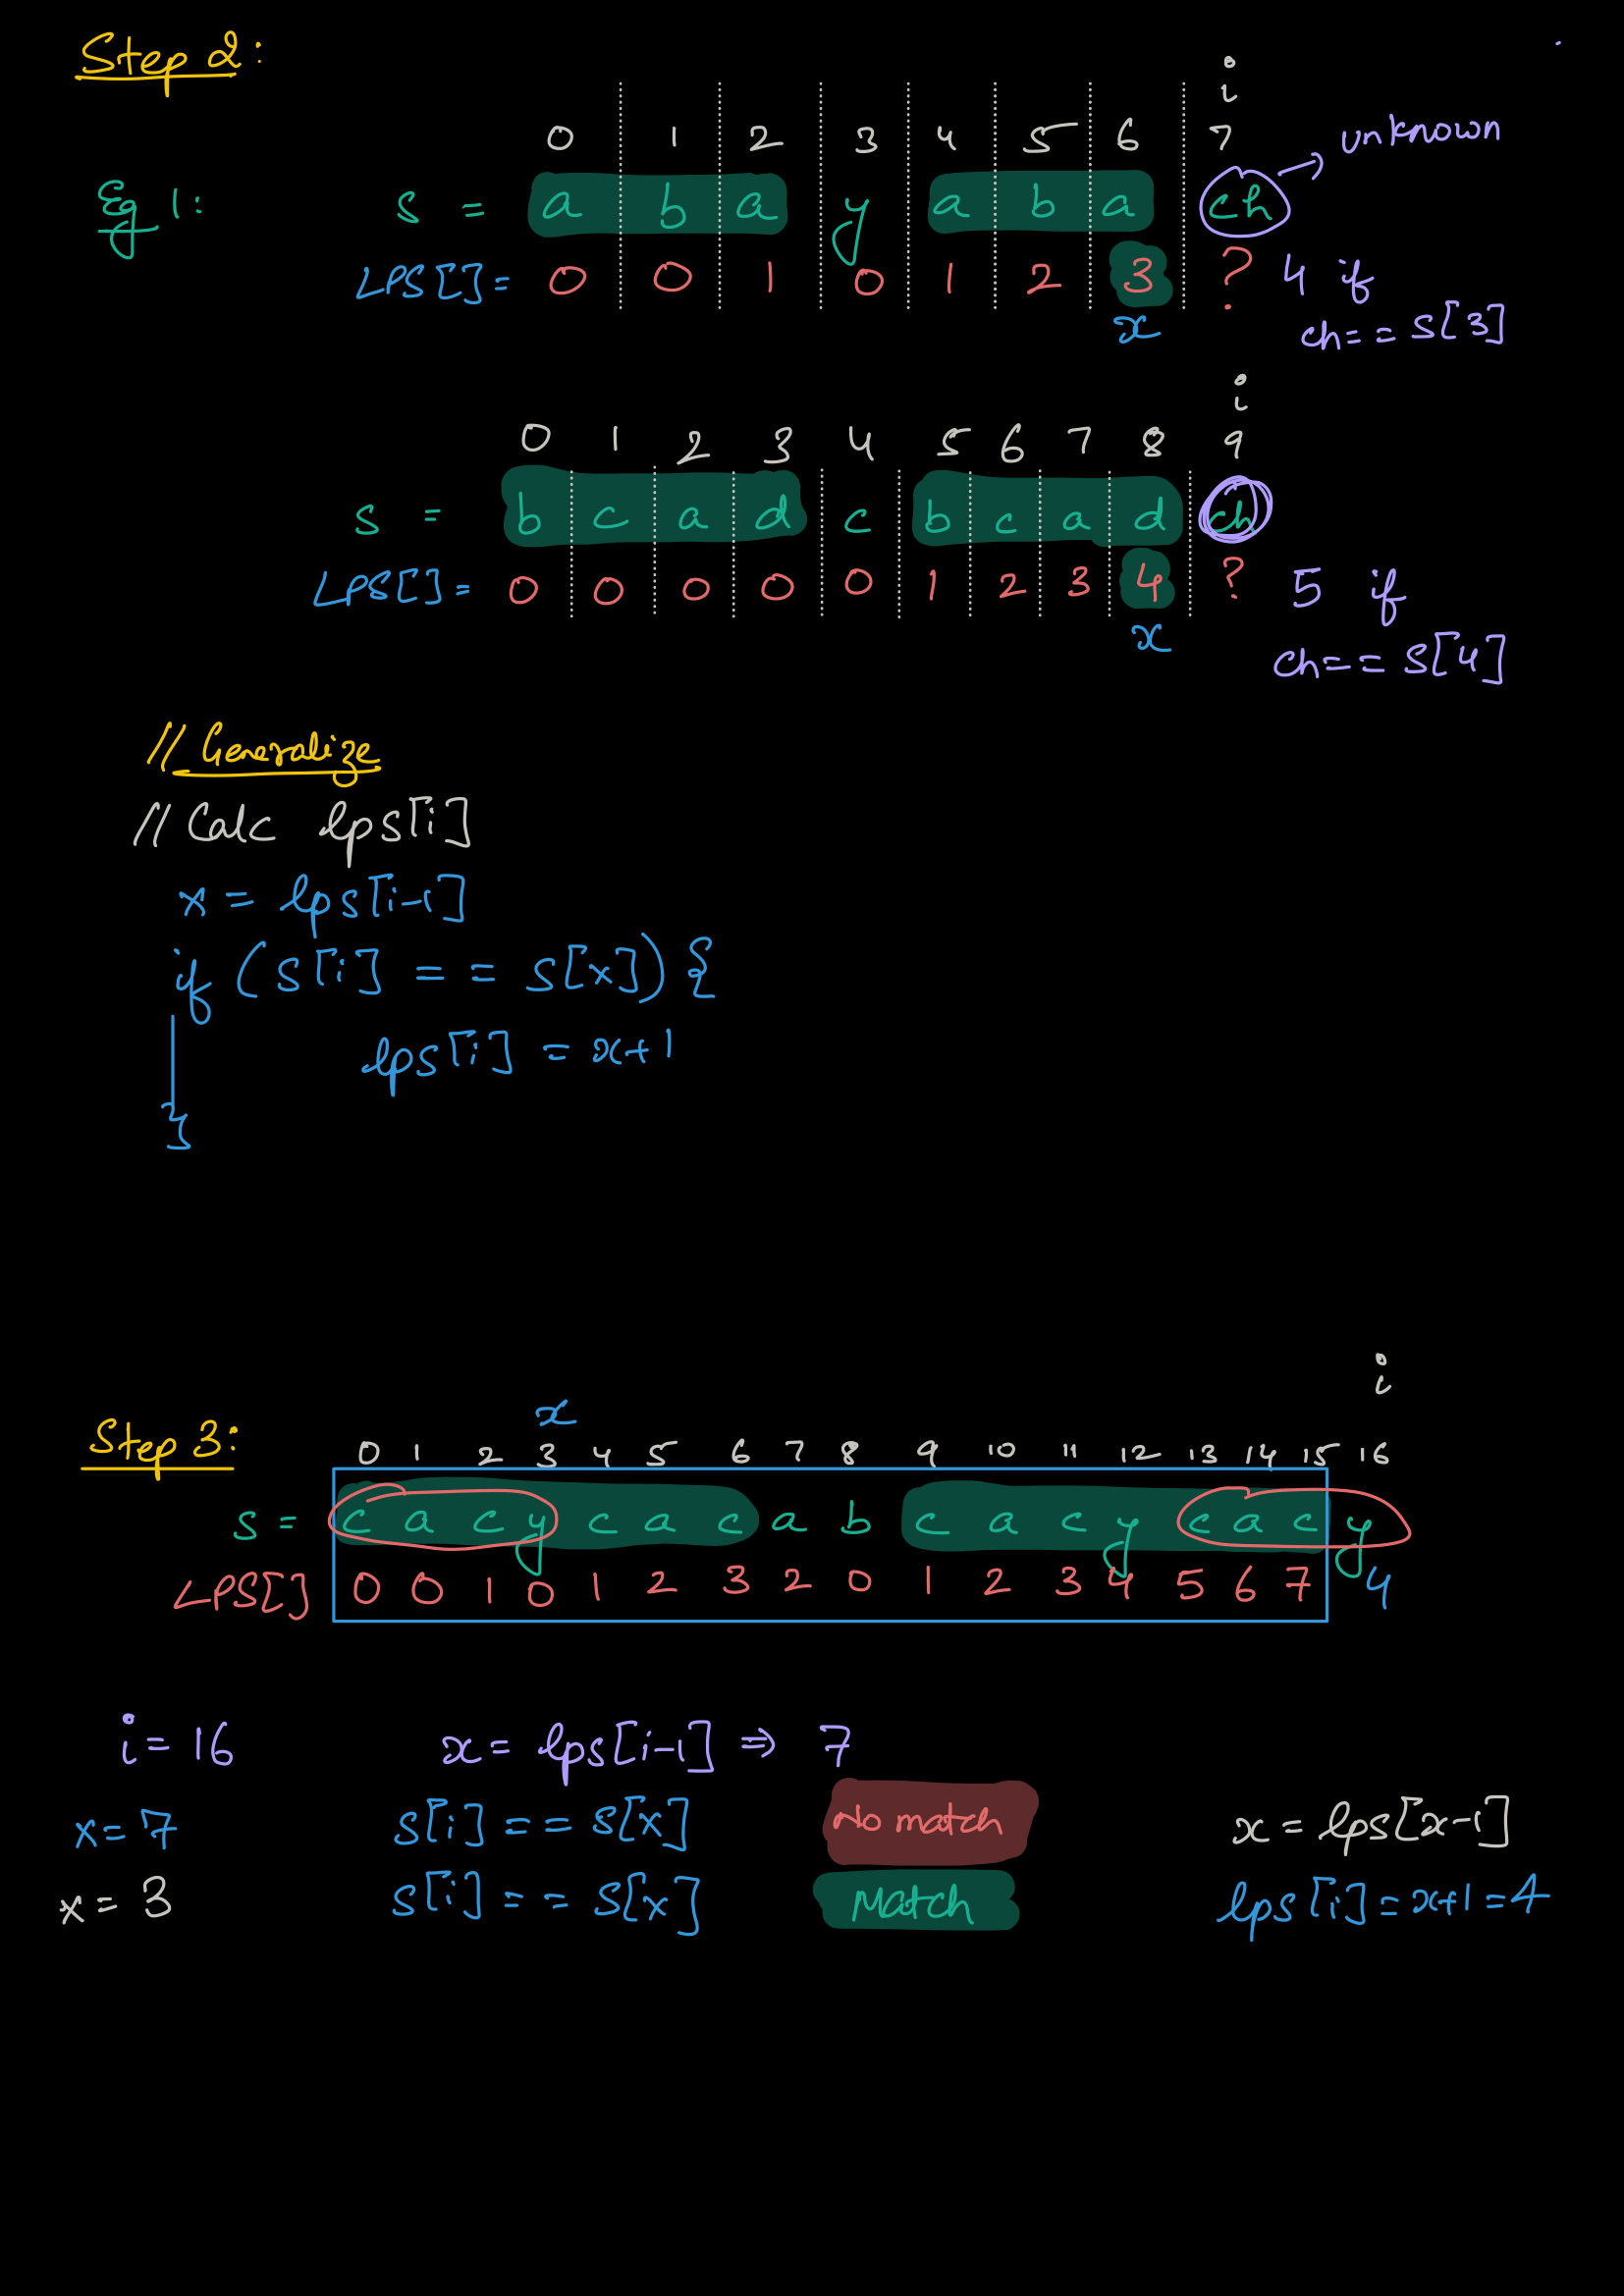 Step 2:
i
0 1 2 3 4 5 6 7 unknown
Eg 1: s = a b a y a b a ch
LPS[] = 0 0 1 0 1 2 3 ? 4 if
x ch == s[3]
i
0 1 2 3 4 5 6 7 8 9
s = b c a d c b c a d ch
LPS[] = 0 0 0 0 0 1 2 3 4 ? 5 if
x ch == s[4]
// Generalize
// Calc lps[i]
x = lps[i-1]
if (s[i] == s[x]) {
lps[i] = x+1
}
i
x
Step 3: 0 1 2 3 4 5 6 7 8 9 10 11 12 13 14 15 16
s = c a c y c a c a b c a c y c a c y
LPS[] 0 0 1 0 1 2 3 2 0 1 2 3 4 5 6 7 4
i = 16 x = lps[i-1] ⇒ 7
x = 7 s[i] == s[x] No match x = lps[x-1]
x = 3 s[i] == s[x] Match lps[i] = x+1 = 4